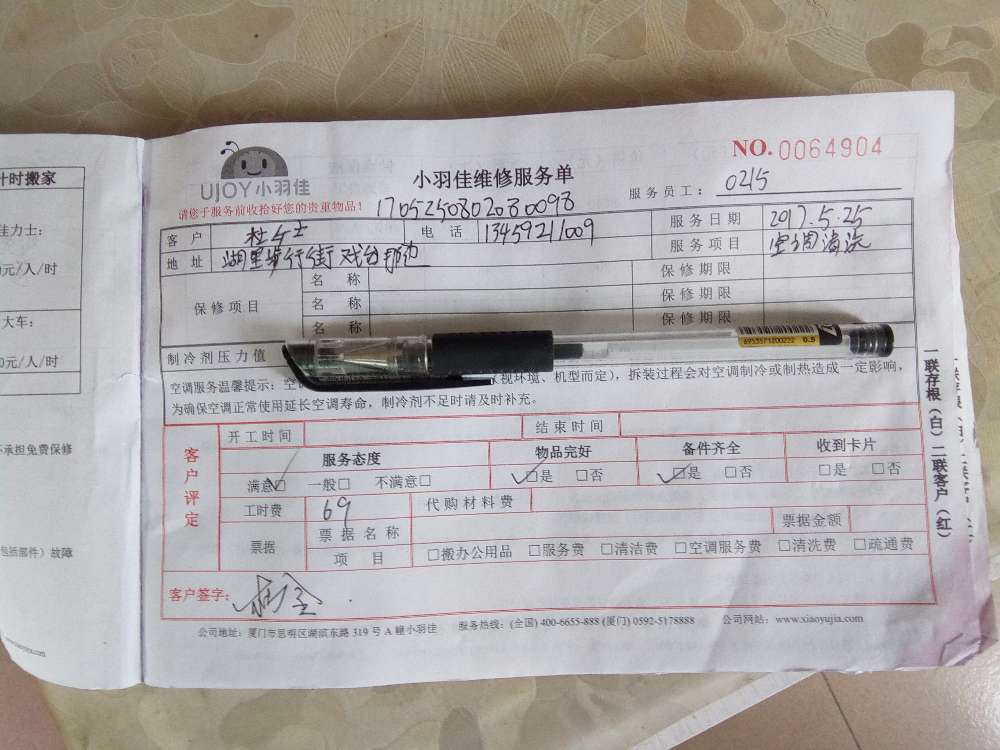 NO.0064904
UJOY小羽佳
小羽佳维修服务单
服务员工: 0215
请您于服务前收拾好您的贵重物品!
1705250802080098
客 户 杜女士 电 话 13459211009 服务日期 2017.5.25
地 址 湖里步行街戏台那边 服务项目 空调清洗
保修项目 名 称 保修期限
名 称 保修期限
名 称 保修期限
制冷剂压力值
6953571200222 0.5
空调服务温馨提示:空 视环境、机型而定),拆装过程会对空调制冷或制热造成一定影响,
为确保空调正常使用延长空调寿命,制冷剂不足时请及时补充。
客户评定
开工时间 结束时间
服务态度 物品完好 备件齐全 收到卡片
满意□ 一般□ 不满意□ □是 □否 □是 □否 □是 □否
工时费 69 代购材料费
票据 票据名称 票据金额
项 目 □搬办公用品 □服务费 □清洁费 □空调服务费 □清洗费 □疏通费
客户签字:
公司地址:厦门市思明区湖滨东路 319 号 A 幢小羽佳 服务热线:(全国) 400-6655-888 (厦门) 0592-5178888 公司网站:www.xiaoyujia.com
一联存根(白)二联客户(红)
计时搬家
佳力士:
元/人/时
大车:
0元/人/时
不承担免费保修
包括部件)故障